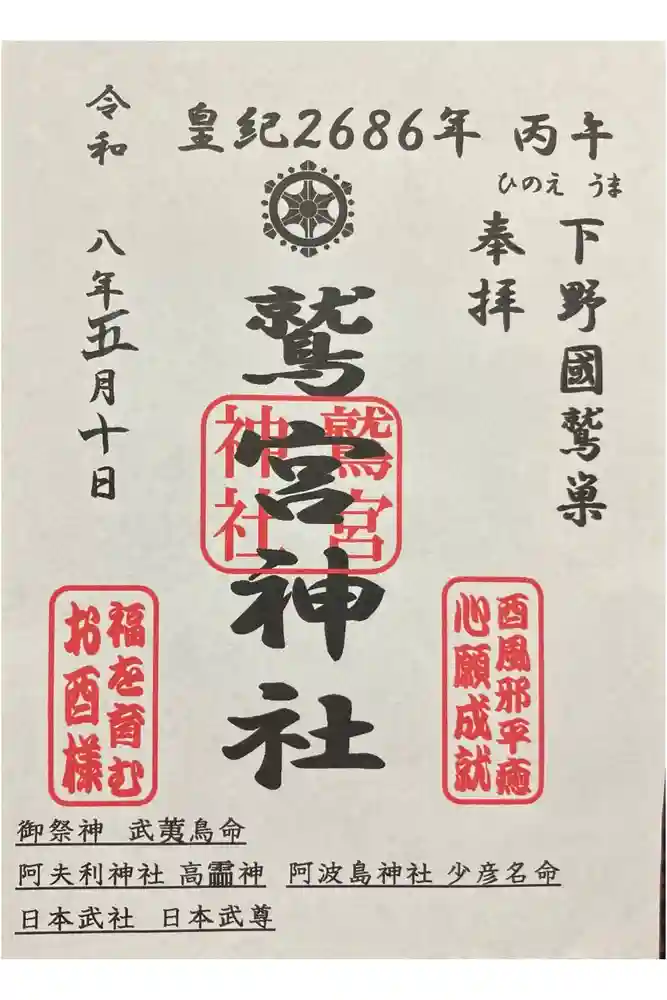 皇紀2686年 丙午
ひのえ うま
下野國鷲巣
奉拝
鷲宮神社
鷲宮
神社
令和 八年五月十日
酉風邪平癒
心願成就
福を育む
お酉様
御祭神 武夷鳥命
阿夫利神社 高龗神 阿波島神社 少彦名命
日本武社 日本武尊